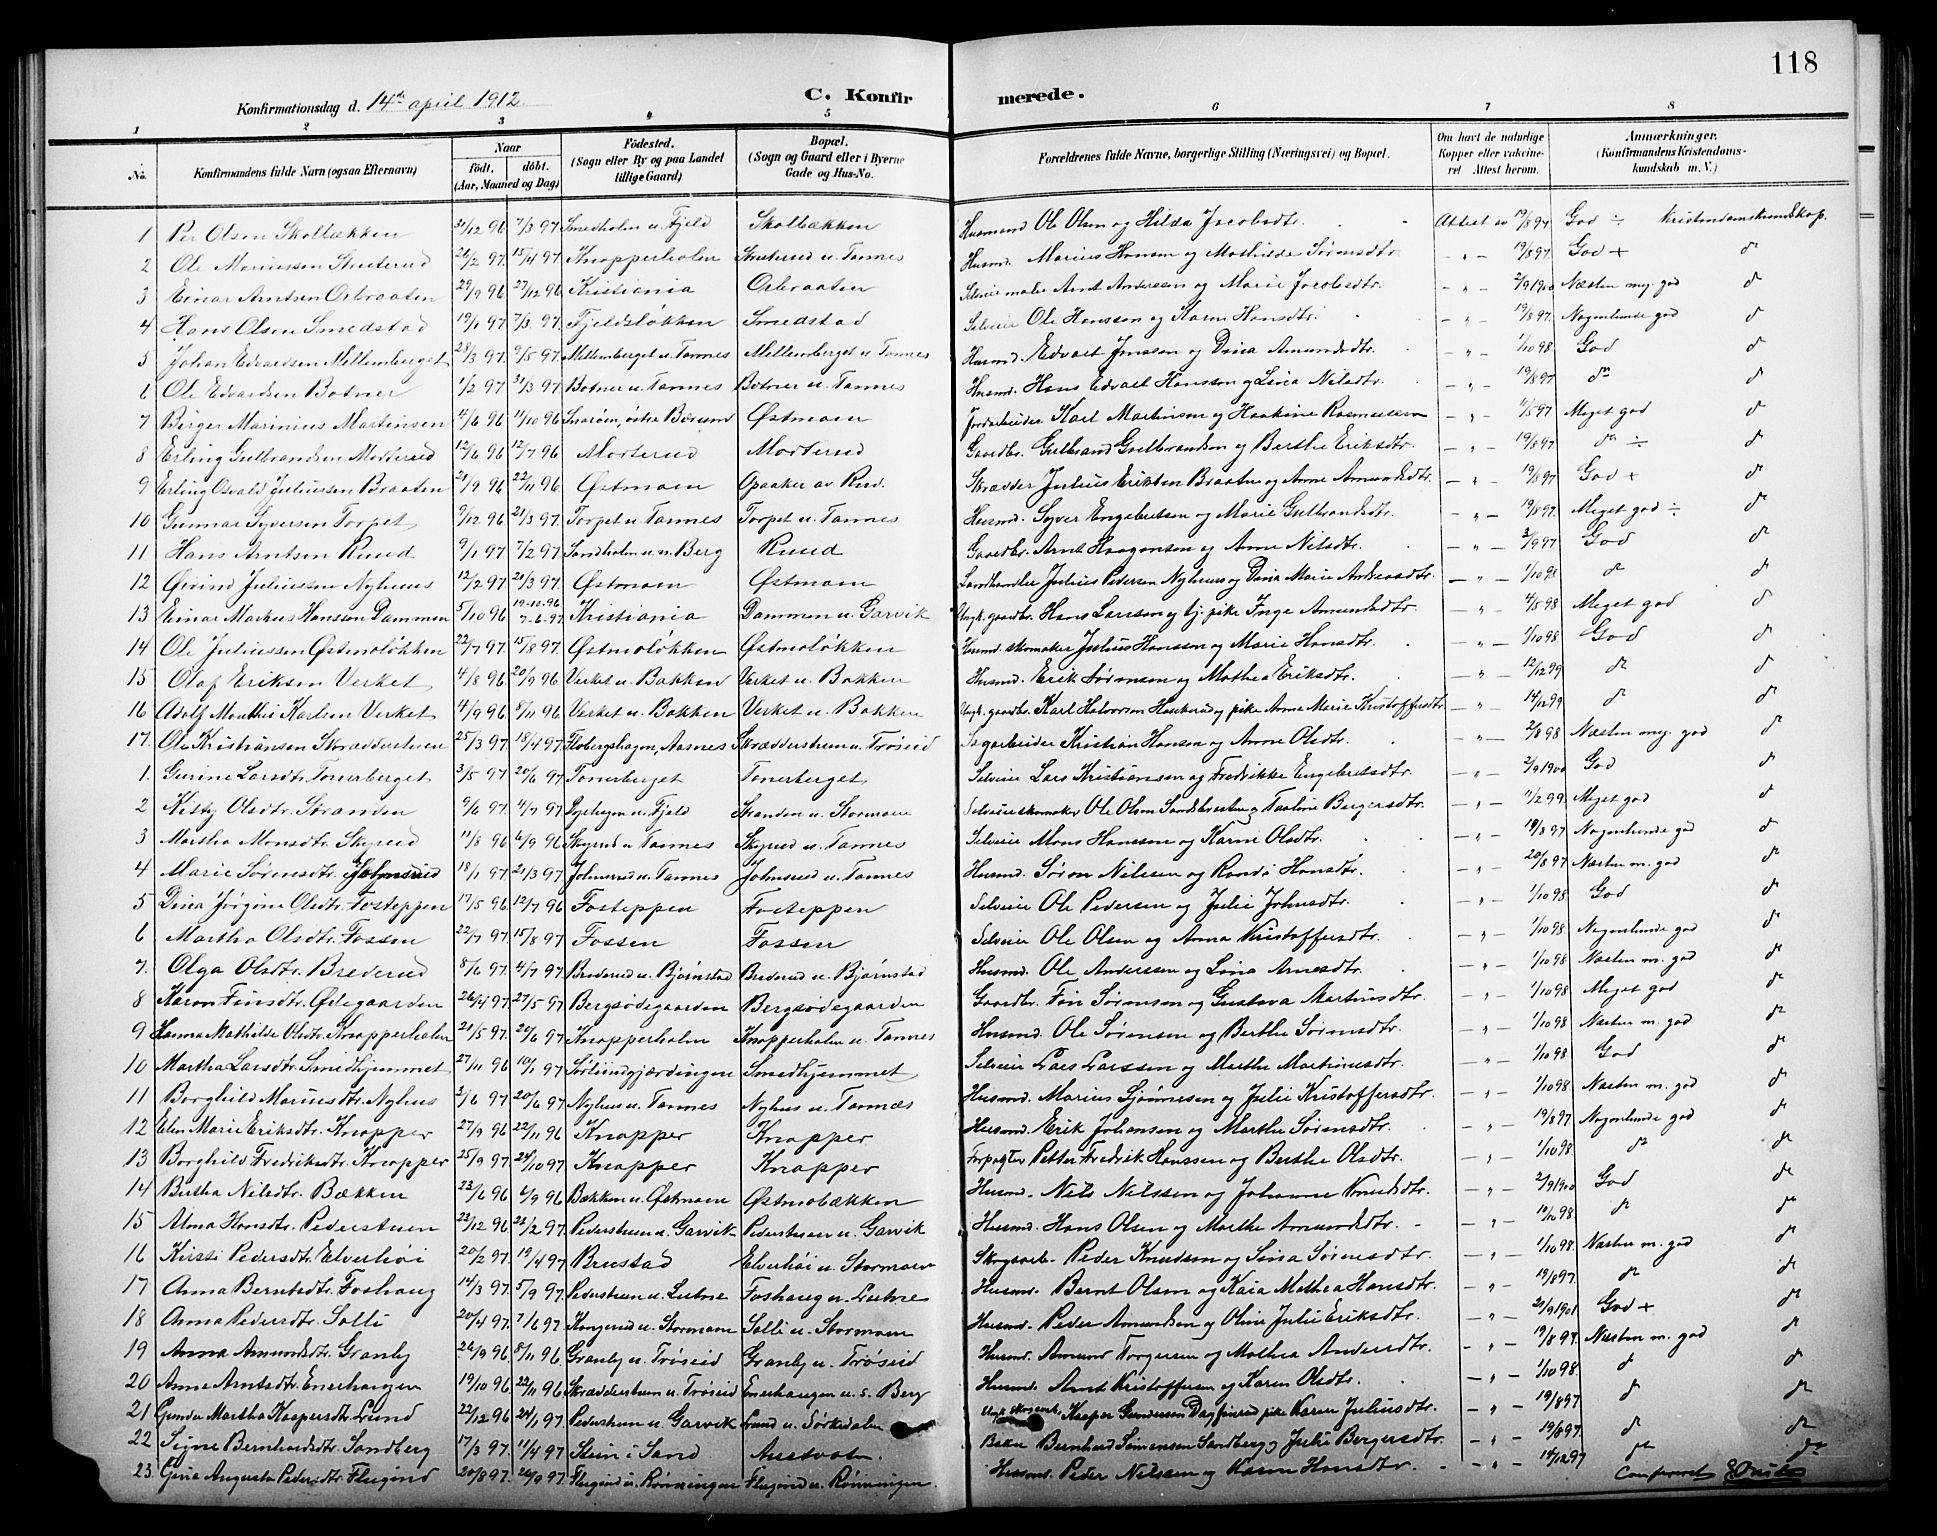 118
Konfirmationsdag d. 14de april 1912. C. Konfirmerede.
1 2 3 4 5 6 7 8
No. Konfirmandens fulde Navn (ogsaa Efternavn) Naar födt. döbt. (Aar, Maaned og Dag) Födested. (Sogn eller By og paa Landet tillige Gaard) Bopæl. (Sogn og Gaard eller i Byerne Gade og Hus-No. Forældrenes fulde Navne, borgerlige Stilling (Næringsvei) og Bopæl. Om havt de naturlige Kopper eller vaccineret Attest herom. Anmærkninger. (Konfirmandens Kristendomskundskab m. V.)
1 Per Olsen Skolbækken 31/12 96 7/3 97. Smedholm u. Fjeld Skolbækken Husmand Ole Olsen og Hilda Jacobsdtr. Attest av 19/8 97 God ÷ Kristendomskundskap.
2 Ole Mariussen Struterud 26/2 97. 15/4 97. Knapperholen Struterud u. Tannes Husmd. Marius Hansen og Mathilde Sørensdtr. - " - 19/8 97. God +
3 Einar Arntsen Orbraaten 29/9 96 27/12 96 Kristiania Orbraaten Selveier maler Arnt Anderssen og Marie Jacobsdtr. - " - 2/9 1900 Næsten meg. god
4 Hans Olsen Smedstad 19/1 97. 7/3 97. Fjeldsløkken Smedstad Selveier Ole Hanssen og Karen Hansdtr. - " - 19/8 97. Nogenlunde god
5 Johan Edvardsen Mellemberget 28/3 97. 9/5 97. Mellemberget u. Tannes Mellemberget u. Tannes Husmd. Edvart Jenssen og Dina Amundsdtr. - " - 1/10 98. God
6 Ole Edvardsen Botner 1/2 97 31/3 97. Botner u. Tannes Botner u. Tannes Husmd. Hans Edvart Hanssen og Lina Nilsdtr. - " - 19/8 97. do
7 Birger Marinius Martinsen 4/6 96 11/10 96 Snarøen, østre Bærum Østmoen Jordarbeider Karl Martinsen og Haakine Rasmussen - " - 11/5 97. Meget god
8 Erling Gulbrandsen Morterud 12/6 96 12/7 96 Morterud Morterud Gaardbr. Gulbrand Gulbrandsen og Berthe Eriksdtr. - " - 19/8 97 do ÷
9 Erling Osvald Juliussen Braaten 21/9 96 22/11 96 Østmoen Opaaker av Rud. Skrædder Julius Eriksen Braaten og Anne Amundsdtr. - " - 19/8 97 God +
10 Gunnar Syversen Torpet 9/12 96 21/3 97. Torpet u. Tannes Torpet u. Tannes Husmd. Syver Engebretsen og Marie Gulbrandsdtr. - " - 19/8 97. Meget god ÷
11 Hans Arntsen Ruud 9/1 97 7/2 97. Sandholm u. n. Berg Ruud Gaardbr. Arnt Haagensen og Anne Nilsdtr. - " - 2/9 97 God
12 Øivind Juliussen Nyhuus 12/2 97. 21/3 97. Østmoen Østmoen Landhandler Julius Pedersen Nyhuus og Dina Marie Andreasdtr. - " - 1/10 98 do
13 Einar Markus Hansen Dammen 5/10 96 19-10-96 7-6-97 Kristiania Dammen u. Garvik Ungk. gaardbr. Hans Larssen og tj. pike Inge Amundsdtr. - " - 4/5 98 Meget god
14 Ole Juliussen Østmoløkken 22/7 97. 15/8 97. Østmoløkken Østmoløkken Husmd. skomaker Julius Hanssen og Marie Hansdtr. - " - 1/10 98 God
15 Olaf Eriksen Verket 4/8 96 20/9 96 Verket u. Bakken Verket u. Bakken Husmd. Erik Sørensen og Mathea Eriksdtr. - " - 12/12 99 do
16 Adolf Monthei Karlsen Verket 4/9 96 8/11 96 Verket u. Bakken Verket u. Bakken Ungk. gaardbr. Karl Halvorsen og pike Anne Marie Kristoffersdtr. - " - 14/12 99 do
17. Ole Kristiansen Skrædderstuen 25/3 97. 18/4 97. Flobergshagen, Aasnes Skrædderstuen u. Trøseid Sagarbeider Kristian Hansen og Anne Olsdtr. - " - 2/8 98 Næsten meg. god
1. Gurine Larsdtr. Tonerberget 3/5 97 20/6 97 Tonerberget Tonerberget Selveier Lars Kristiansen og Fredrikke Engebretsdtr. - " - 2/9 1900 God
2 Kitty Olsdtr. Stranden 9/6 97. 4/7 97. u. Fjeld Stranden u. Stormoen Selveier skomaker Ole Olsen og Taaline Bergersdtr. - " - 11/2 99. Meget god
3 Martha Monsdtr. Skyrud 11/8 96 6/9 96 Skyrud u. Tannes Skyrud u. Tannes Selveier Mons Hanssen og Karen Olsdtr. - " - 19/8 97 Nogenlunde god
4 Marie Sørensdtr. Johnsrud 18/1 97 21/3 97. Johnsrud u. Tannes Johnsrud u. Tannes Husmd. Søren Nilssen og Randi Hansdtr. - " - 20/8 97 Næsten m. god
5 Dina Jørgine Olsdtr. Fosteppen 17/5 96 12/7 96 Fosteppen Fosteppen Selveier Ole Pedersen og Julie Johnsdtr. - " - 1/10 98 God
6 Martha Olsdtr. Fossen 22/7 97. 15/8 97 Fossen Fossen Selveier Ole Olsen og Anna Kristoffersdtr. - " - 1/10 98. Nogenlunde god
7. Olga Olsdtr. Brederud 8/6 97. 4/7 97. Brederud u. Bjørnstad Brederud u. Bjørnstad Husmd. Ole Anderssen og Lina Arnesdtr. - " - 1/10 98 Næsten m. god
8 Karen Finsdtr. Ødegaarden 26/4 97. 27/5 97. Bergsødegaarden Bergsødegaarden Gaardbr. Fin Sørensen og Gustava Martinsdtr. - " - 1/10 98 Meget god
9 Hanna Mathilde Olsdtr. Knapperholen 21/5 97. 20/6 97 Knapperholen Knapperholen u. Tannes Husmd. Ole Sørensen og Berthe Sørensdtr. - " - 1/10 98 Næsten m. god
10 Martha Larsdtr. Smedhjemmet 27/11 96 10/1 97 Smedhjemmet Selveier Lars Larssen og Marthe Martinusdtr. - " - 1/10 98 God
11 Borghild Mariusdtr. Nyhus 3/6 97. 20/6 97 Nyhus u. Tannes Nyhus u. Tannæs Husmd. Marius og Julie Kristoffersdtr. - " - 1/10 98 Næsten m. god
12 Elen Marie Eriksdtr. Knapper 27/9 96 22/11 96 Knapper Knapper Husmd. Erik Johansen og Marthe Sørensdtr. - " - 19/8 97 Nogenlunde god
13 Borghild Fredriksdtr. Knapper 25/9 97. 24/10 97. Knapper Knapper Forpagter Petter Fredrik Hanssen og Berthe Olsdtr. - " - 1/10 98 do
14 Bertha Nilsdtr. Bækken 23/6 96 6/9 96 Bækken u. Østmoen Østmobækken Husmd. Nils Nilssen og Johanne Knudsdtr. - " - 2/9 1900 God
15 Alma Hansdtr. Pederstuen 23/12 96 21/2 97. Pederstuen u. Garvik Pederstuen u. Garvik Husmd. Hans Olsen og Marthe Amundsdtr. - " - 1/10 98. do
16 Kirsti Pedersdtr. Elverhøi 20/2 97. 19/4 97 Brustad Elverhøi u. Stormoen Skogsarb. Peder Knudsen og Lina Sørensdtr. - " - 1/10 98. Næsten m. god
17 Anna Berntsdtr. Foshaug 14/3 97. 5/9 97. Pederstuen u. Lutne Foshaug u. Lutne Husmd. Bernt Olsen og Kaia Mathea Hansdtr. - " - 19/8 97. do
18 Anna Pedersdtr. Solli 20/4 97. 7/6 97. Kongerud u. Stormoen Solli u. Stormoen Husmd. Peder Amundsen og Oline Julie Eriksdtr. - " - 20/9 1901 God +
19 Anna Amundsdtr. Granby 26/9 96 8/11 96. Granby u. Trøseid Granby u. Trøseid Husmd. Amund Torgersen og Mathea Andersdtr. - " - 19/8 97. Næsten m. god
20 Anne Arntsdtr. Enerhaugen 19/10 96 22/11 96 Skrædderstuen u. Trøseid Enerhaugen u. s. Berg Husmd. Arnt Kristoffersen og Karen Olsdtr. - " - 1/10 98. do
21 Gunda Martha Kaspersdtr. Lund 22/12 96 24/1 97. Pederstuen u. Garvik Lund u. Sørkedalen Kasper Gundersen Dagfinrud pike Karen Juliusdtr. - " - 19/8 97 do
22 Signe Bernhardsdtr. Sandberg 17/3 97. 11/4 97 Stein i Sand Austvaten. Baker Bernhard Simensen Sandberg og Julie Bergersdtr. - " - 19/8 97. do
23. Gina Augusta Pedersdtr. Flugind 20/8 97. 26/9 97. Flugind u. Rønningen Flugind u. Rønningen. Husmd. Peder Nilssen og Karen Hansdtr. - " - 14/12 97 do